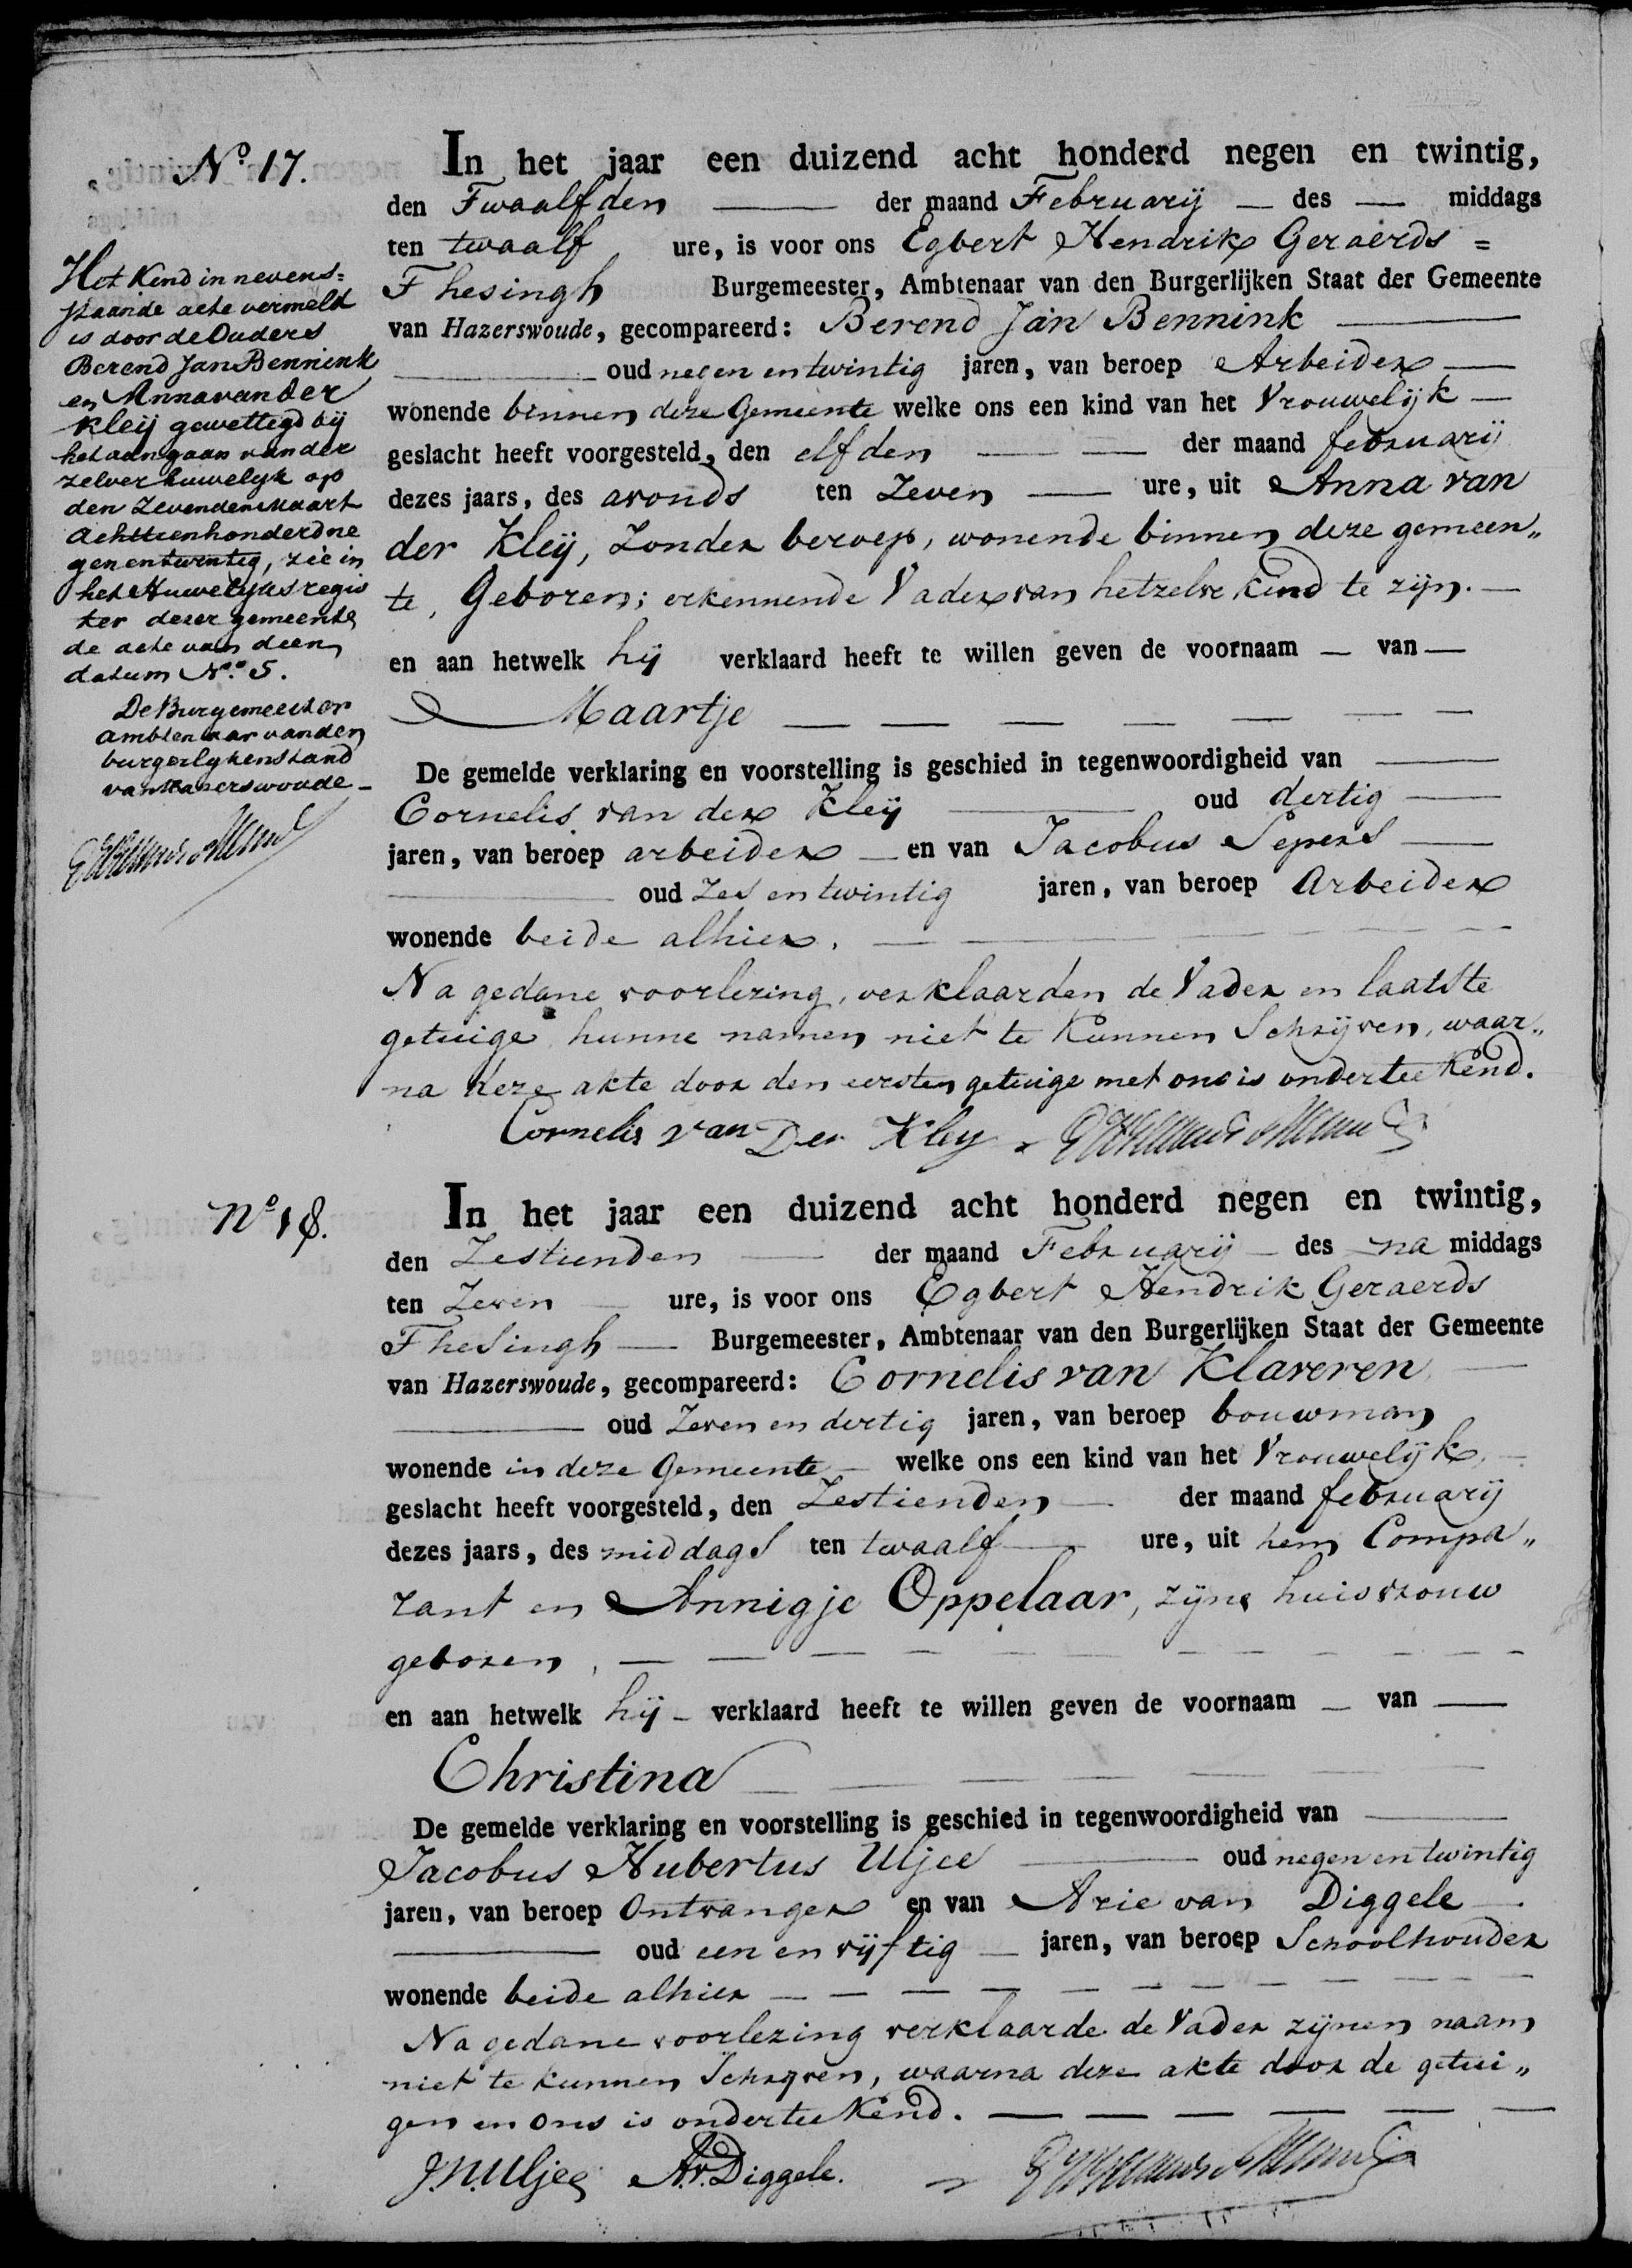 N.o 17.
In het jaar een duizend acht honderd negen en twintig,
den Twaalfden — der maand Februarij — des — middags
ten twaalf ure, is voor ons Egbert Hendrik Geraerds =
Thesingh Burgemeester, Ambtenaar van den Burgerlijken Staat der Gemeente
van Hazerswoude, gecompareerd: Berend Jan Bennink —
— oud negen en twintig jaren, van beroep Arbeider —
wonende binnen deze Gemeente welke ons een kind van het Vrouwelijk —
geslacht heeft voorgesteld, den elfden — — der maand februarij
dezes jaars, des avonds ten Zeven — ure, uit Anna van
der Kleij, Zonder beroep, wonende binnen deze gemeen„
te, Geboren; erkennende Vader van hetzelve kind te zijn. —
en aan hetwelk hij verklaard heeft te willen geven de voornaam — van —
Maartje — — — — — — —
De gemelde verklaring en voorstelling is geschied in tegenwoordigheid van —
Cornelis van der Kleij — oud dertig —
jaren, van beroep arbeider — en van Jacobus Sepers —
— oud Zes en twintig jaren, van beroep Arbeider
wonende beide alhier. — — — — — —
Na gedane voorlezing, verklaarden de Vader en laatste
getuige hunne namen niet te kunnen Schrijven, waar„
na deze akte door den eersten getuige met ons is onderteekend.
Cornelis van Der Kley
Het Kind in nevens=
staande acte vermeld
is door de Ouders
Berend Jan Bennink
en Anna van der
Kleij gewettigd bij
het aangaan van der
zelver huwelijk op
den Zevenden Maart
achttienhonderdne
genentwintig, zie in
het Huwelijksregis
ter dezer gemeente
de acte van dien
datum N.o 5.
De Burgemeester
ambtenaar van den
burgerlijken stand
van Hazerswoude —
N.o 18.
In het jaar een duizend acht honderd negen en twintig,
den Zestienden — der maand Februarij — des na middags
ten Zeven — ure, is voor ons Egbert Hendrik Geraerds
Thesingh — Burgemeester, Ambtenaar van den Burgerlijken Staat der Gemeente
van Hazerswoude, gecompareerd: Cornelis van Klaveren —
— oud Zeven en dertig jaren, van beroep bouwman
wonende in deze Gemeente — welke ons een kind van het Vrouwelijk —
geslacht heeft voorgesteld, den Zestienden — der maand februarij
dezes jaars, des middags ten twaalf — ure, uit hem Compa„
rant en Annigje Oppelaar, zijne huisvrouw
geboren, — — — — — — — — — —
en aan hetwelk hij — verklaard heeft te willen geven de voornaam — van —
Christina — — — — — —
De gemelde verklaring en voorstelling is geschied in tegenwoordigheid van —
Jacobus Hubertus Uljee — oud negen en twintig
jaren, van beroep Ontvanger en van Arie van Diggele —
— oud een en vijftig — jaren, van beroep Schoolhouder
wonende beide alhier — — — — — — — — —
Na gedane voorlezing verklaarde de Vader zijnen naam
niet te kunnen Schrijven, waarna deze akte door de getui„
gen en ons is onderteekend. — — — — — —
J.H. Uljee A.v. Diggele.